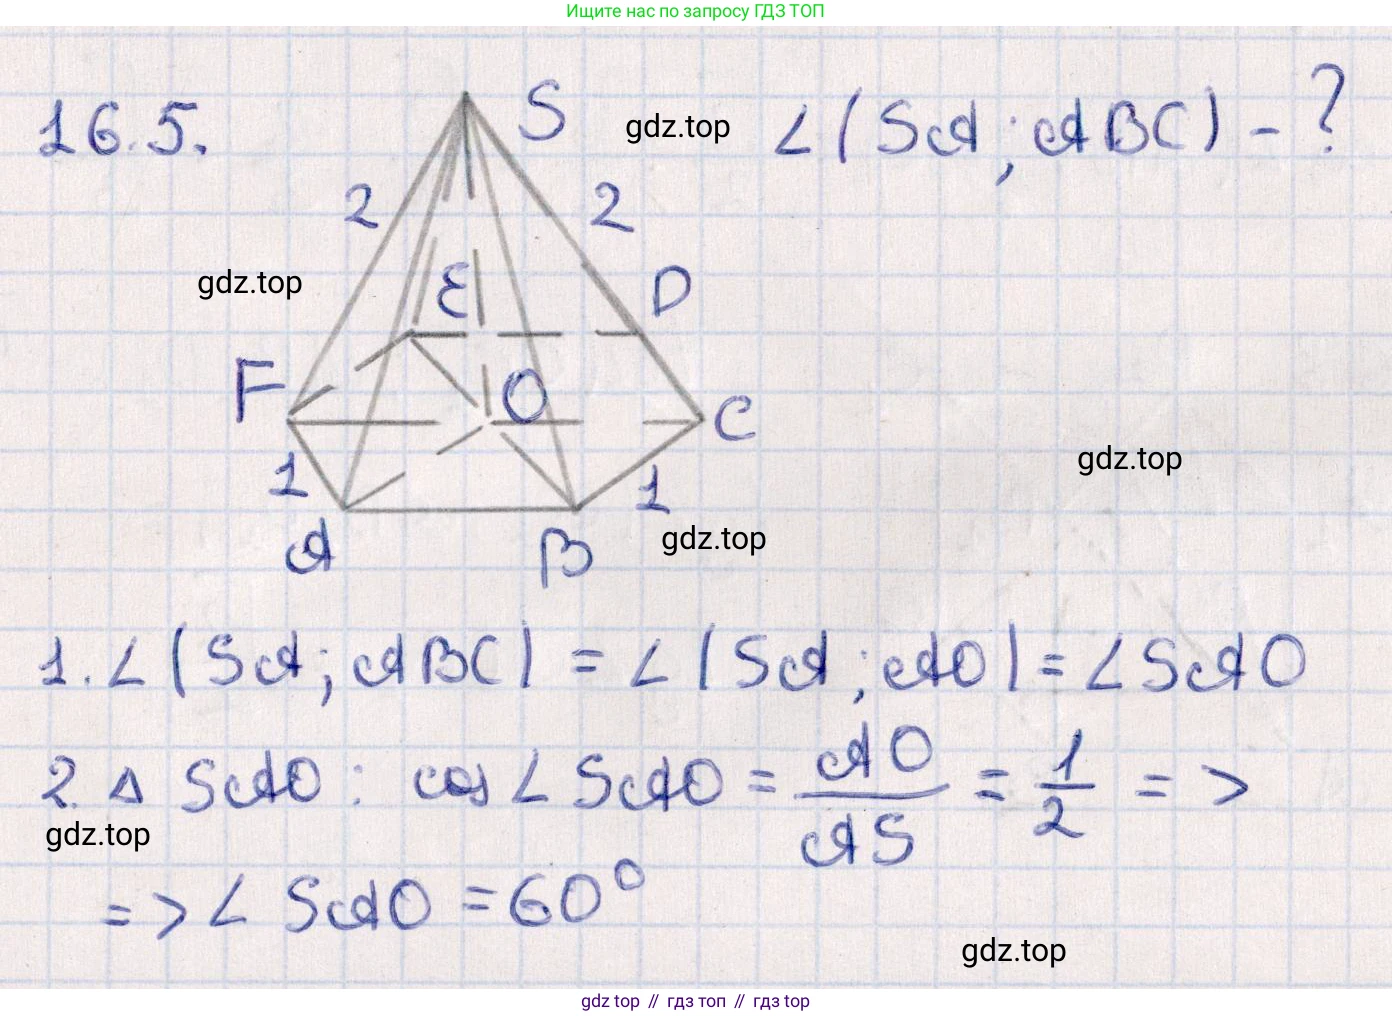 Ищите нас по запросу ГДЗ ТОП
16.5.
S
gdz.top
∠(SA; ABC) - ?
2
2
gdz.top
E
D
F
O
C
gdz.top
1
1
A
B
gdz.top
1. ∠(SA; ABC) = ∠(SA; AO) = ∠SAO
2. Δ SAO: cos∠SAO = AO/AS = 1/2 =>
gdz.top
=> ∠SAO = 60°
gdz.top
gdz top // гдз топ // гдз top